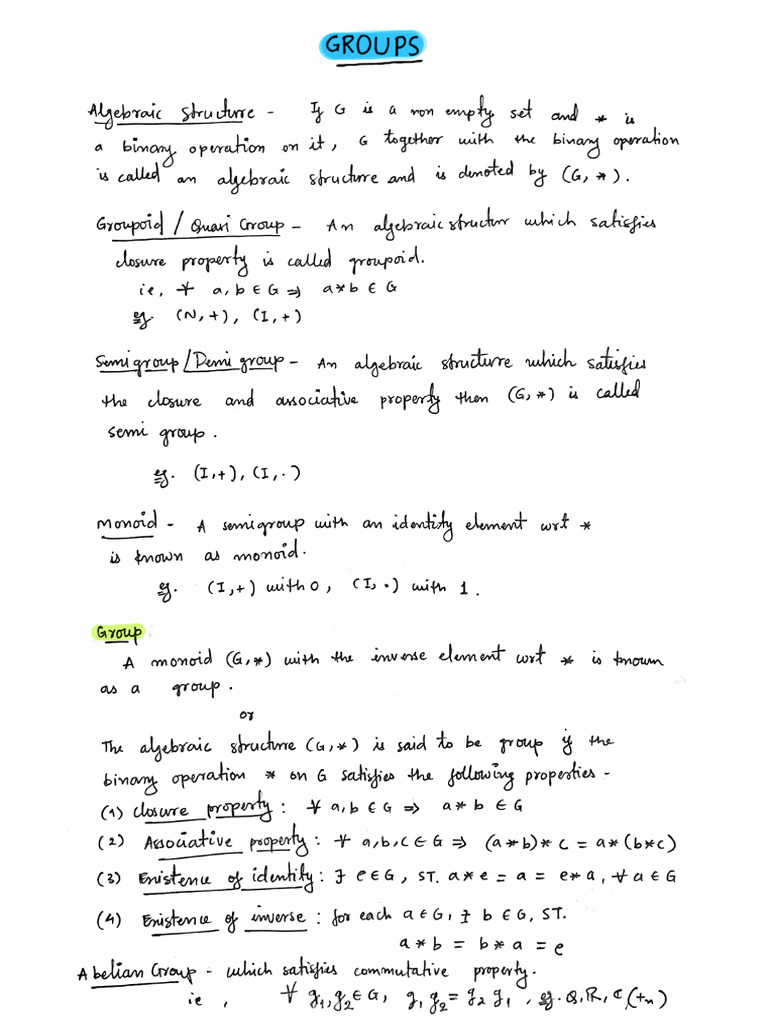 GROUPS
Algebraic Structure - If G is a non empty set and * is
a binary operation on it, G together with the binary operation
is called an algebraic structure and is denoted by (G, *).
Groupoid / Quasi Group - An algebraic structur which satisfies
closure property is called groupoid.
ie, ∀ a, b ∈ G ⇒ a * b ∈ G
eg. (N, +), (I, +)
Semigroup / Demi group - An algebraic structure which satisfies
the closure and associative property then (G, *) is called
semi group.
eg. (I, +), (I, ·)
Monoid - A semigroup with an identity element wrt *
is known as monoid.
eg. (I, +) with 0, (I, ·) with 1.
Group
A monoid (G, *) with the inverse element wrt * is known
as a group.
or
The algebraic structure (G, *) is said to be group if the
binary operation * on G satisfies the following properties -
(1) Closure property: ∀ a, b ∈ G ⇒ a * b ∈ G
(2) Associative property: ∀ a, b, c ∈ G ⇒ (a * b) * c = a * (b * c)
(3) Existence of identity: ∃ e ∈ G, ST. a * e = a = e * a, ∀ a ∈ G
(4) Existence of inverse: for each a ∈ G, ∃ b ∈ G, ST.
a * b = b * a = e
Abelian Group - which satisfies commutative property.
ie, ∀ g₁, g₂ ∈ G, g₁ g₂ = g₂ g₁, eg. Q, R, C, (+ₙ)